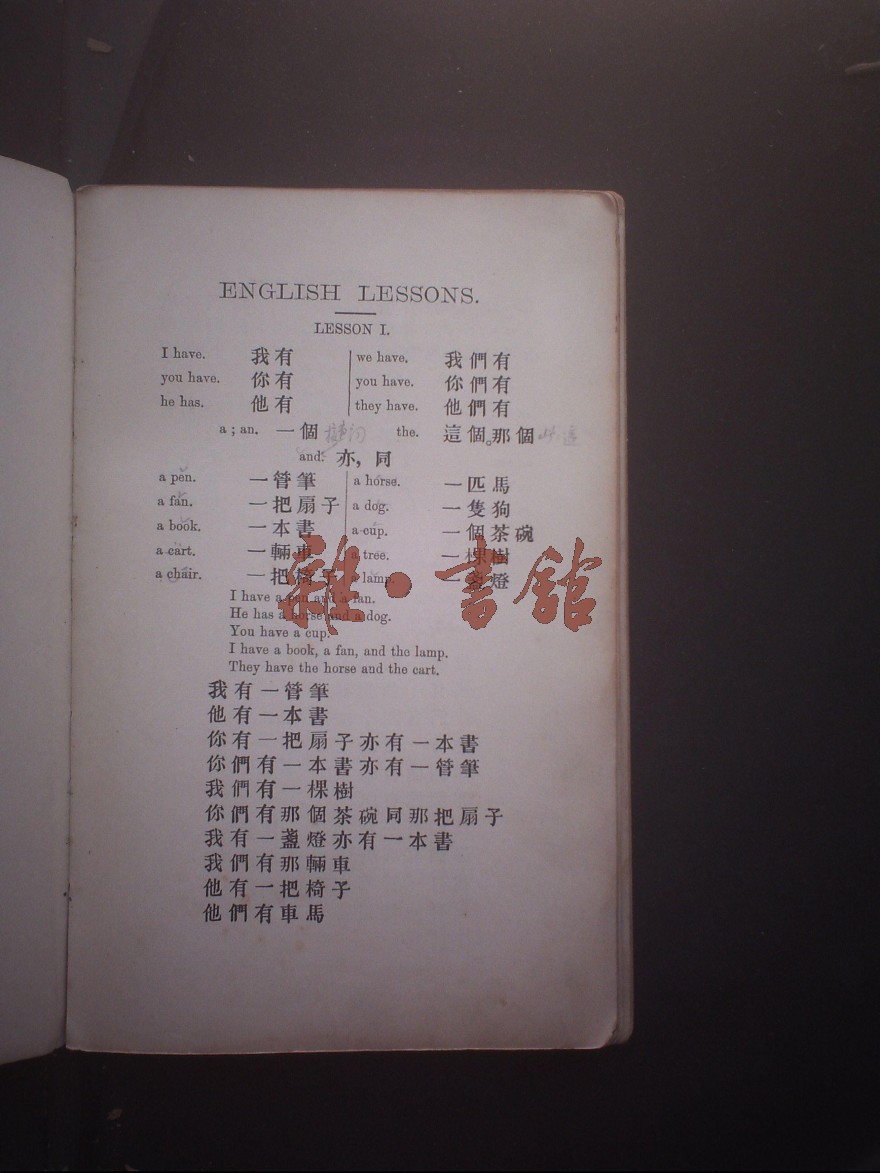 ENGLISH LESSONS.
LESSON I.
I have. 我有 we have. 我們有
you have. 你有 you have. 你們有
he has. 他有 they have. 他們有
a ; an. 一個 the. 這個。那個
and. 亦, 同
a pen. 一管筆 a horse. 一匹馬
a fan. 一把扇子 a dog. 一隻狗
a book. 一本書 a cup. 一個茶碗
a cart. 一輛車 a tree. 一棵樹
a chair. 一把椅子 a lamp. 一盞燈
雜·書館
I have a pen and a fan.
He has a horse and a dog.
You have a cup.
I have a book, a fan, and the lamp.
They have the horse and the cart.
我有一管筆
他有一本書
你有一把扇子亦有一本書
你們有一本書亦有一管筆
我們有一棵樹
你們有那個茶碗同那把扇子
我有一盞燈亦有一本書
我們有那輛車
他有一把椅子
他們有車馬